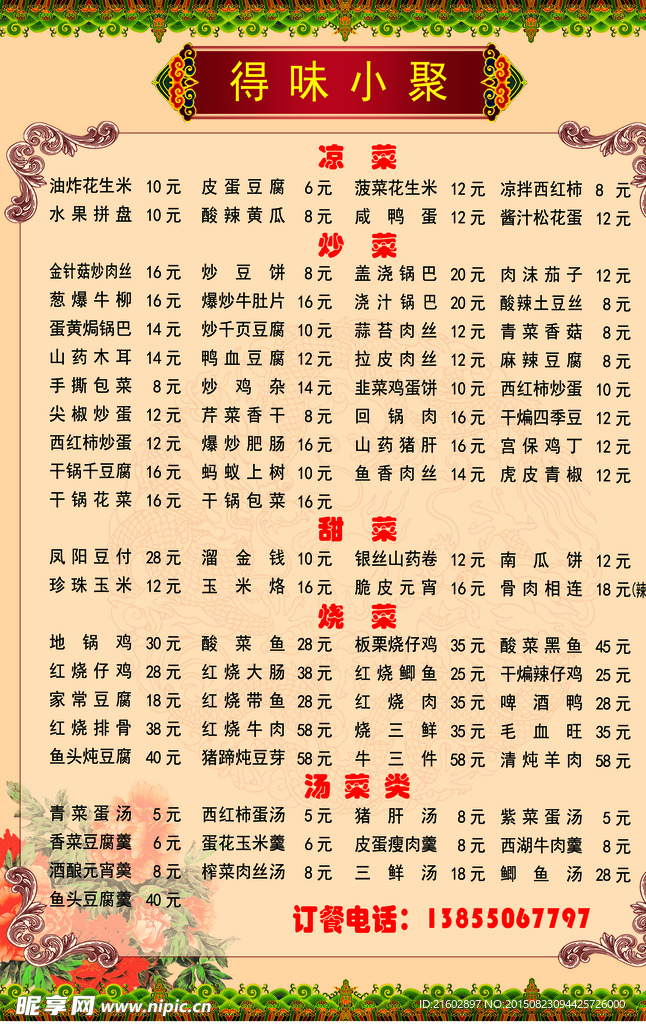 得味小聚
凉菜
油炸花生米 10元 皮蛋豆腐 6元 菠菜花生米 12元 凉拌西红柿 8元
水果拼盘 10元 酸辣黄瓜 8元 咸鸭蛋 12元 酱汁松花蛋 12元
炒菜
金针菇炒肉丝 16元 炒豆饼 8元 盖浇锅巴 20元 肉沫茄子 12元
葱爆牛柳 16元 爆炒牛肚片 16元 浇汁锅巴 20元 酸辣土豆丝 8元
蛋黄焗锅巴 14元 炒千页豆腐 10元 蒜苔肉丝 12元 青菜香菇 8元
山药木耳 14元 鸭血豆腐 12元 拉皮肉丝 12元 麻辣豆腐 8元
手撕包菜 8元 炒鸡杂 14元 韭菜鸡蛋饼 10元 西红柿炒蛋 10元
尖椒炒蛋 12元 芹菜香干 8元 回锅肉 16元 干煸四季豆 12元
西红柿炒蛋 12元 爆炒肥肠 16元 山药猪肝 16元 宫保鸡丁 12元
干锅千豆腐 16元 蚂蚁上树 10元 鱼香肉丝 14元 虎皮青椒 12元
干锅花菜 16元 干锅包菜 16元
甜菜
凤阳豆付 28元 溜金钱 10元 银丝山药卷 12元 南瓜饼 12元
珍珠玉米 12元 玉米烙 16元 脆皮元宵 16元 骨肉相连 18元(辣
烧菜
地锅鸡 30元 酸菜鱼 28元 板栗烧仔鸡 35元 酸菜黑鱼 45元
红烧仔鸡 28元 红烧大肠 38元 红烧鲫鱼 25元 干煸辣仔鸡 25元
家常豆腐 18元 红烧带鱼 28元 红烧肉 35元 啤酒鸭 28元
红烧排骨 38元 红烧牛肉 58元 烧三鲜 35元 毛血旺 35元
鱼头炖豆腐 40元 猪蹄炖豆芽 58元 牛三件 58元 清炖羊肉 58元
汤菜类
青菜蛋汤 5元 西红柿蛋汤 5元 猪肝汤 8元 紫菜蛋汤 5元
香菜豆腐羹 6元 蛋花玉米羹 6元 皮蛋瘦肉羹 8元 西湖牛肉羹 8元
酒酿元宵羹 8元 榨菜肉丝汤 8元 三鲜汤 18元 鲫鱼汤 28元
鱼头豆腐羹 40元
订餐电话：13855067797
昵享网 www.nipic.cn
ID:21602897 NO:20150823094425726000